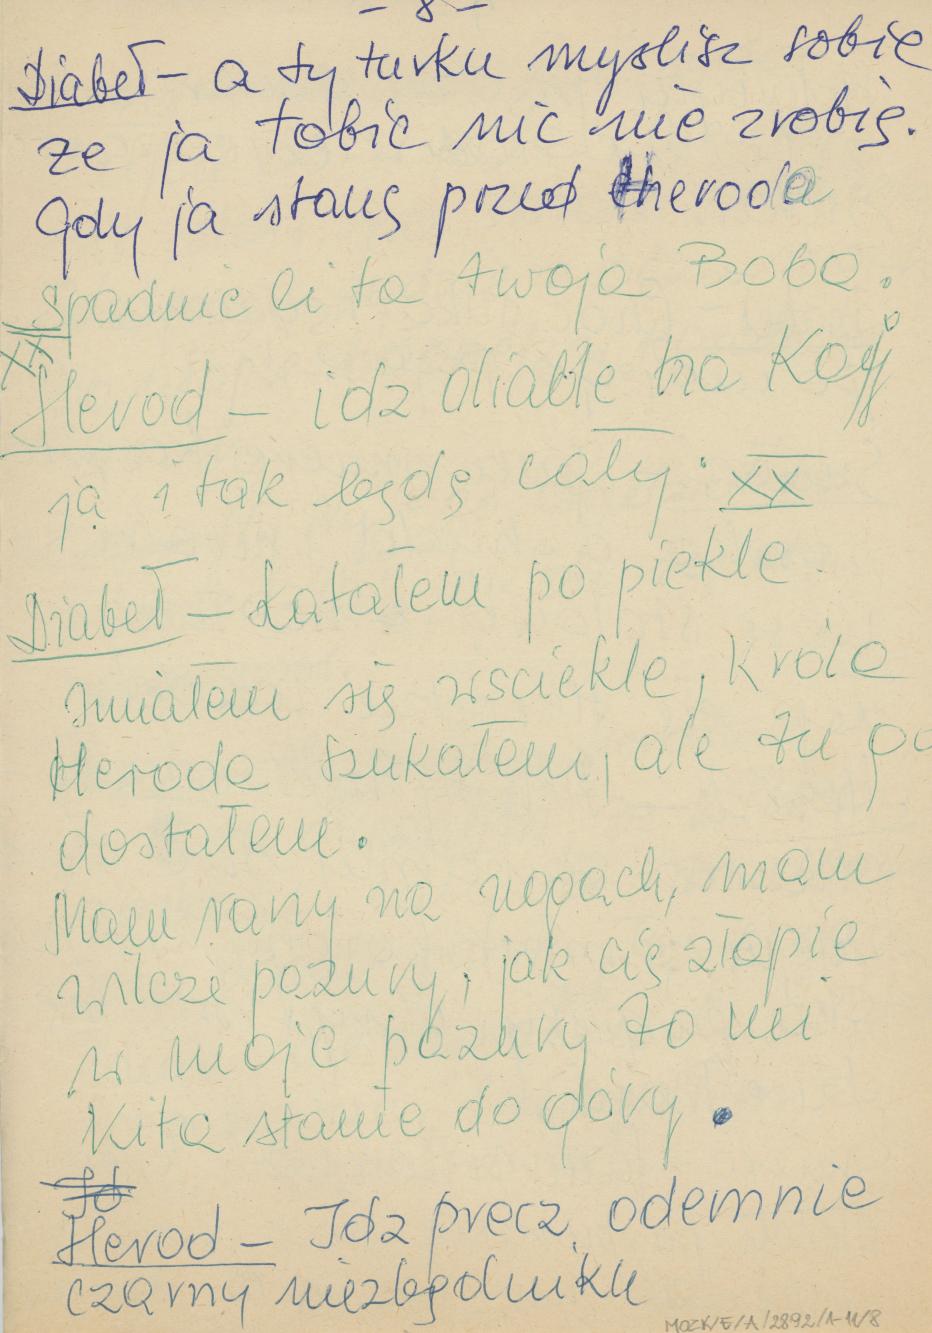 - 8 -
Diabeł - a ty turku myslisz sobie
ze ja tobie nic nie zrobię.
Gdy ja stanę przed heroda
Spadnie ci ta twoja Boba.
XX
Herod - idz diable na Koji
ja i tak będę cały. XX
Diabeł - Latałem po piekle.
Smiałem się wsciekle, króla
Heroda szukałem, ale tu go
dostałem.
Mam rany na nogach, mam
wilcze pazury, jak cię złapie
w moje pazury to mi
Kita stanie do góry.
Id
Herod - Idz precz odemnie
czarny niezbędniku
MOZK/E/A/2892/1-11/8